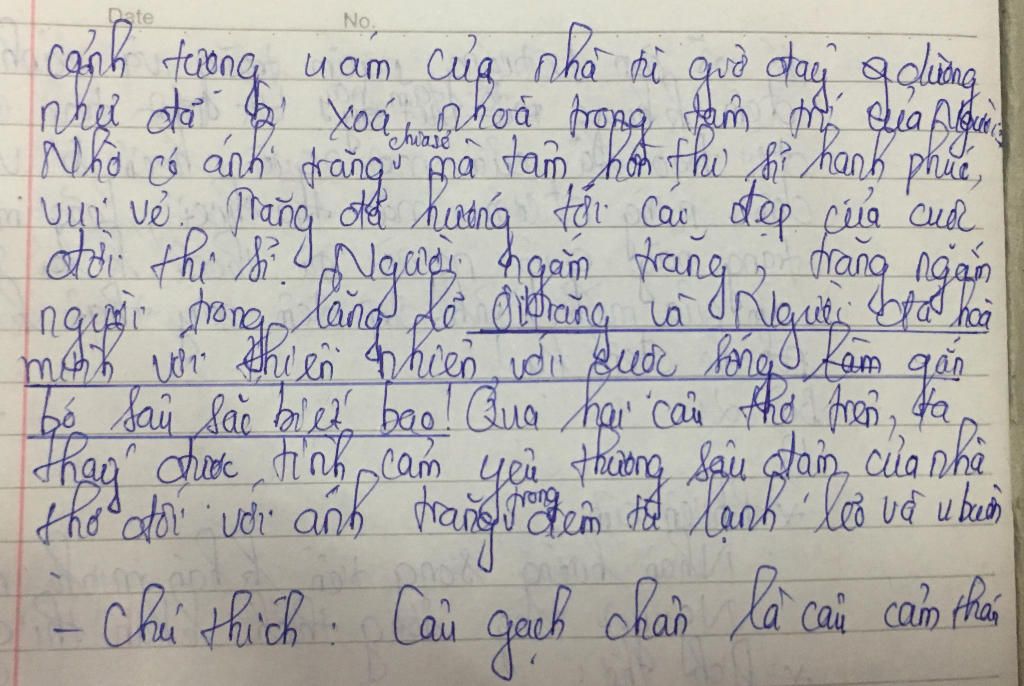 Date No.
cảnh tượng u ám của nhà tù giờ đây dường
như đã bị xoá nhoà trong tâm trí của Người.
Nhờ có ánh trăng chia sẻ mà tâm hồn thi sĩ hạnh phúc,
vui vẻ. Trăng đã hướng tới cái đẹp của cuộc
đời thi sĩ. Người ngắm trăng, trăng ngắm
người trong lặng lẽ. Ôi trăng và Người đã hoà
mình với thiên nhiên với cuộc sống gắn
bó sâu sắc biết bao! Qua hai câu thơ trên, ta
thấy được tình cảm yêu thương sâu đậm của nhà
thơ đối với ánh trăng trong đêm tù lạnh lẽo và u buồn
- Chú thích: Câu gạch chân là câu cảm thán